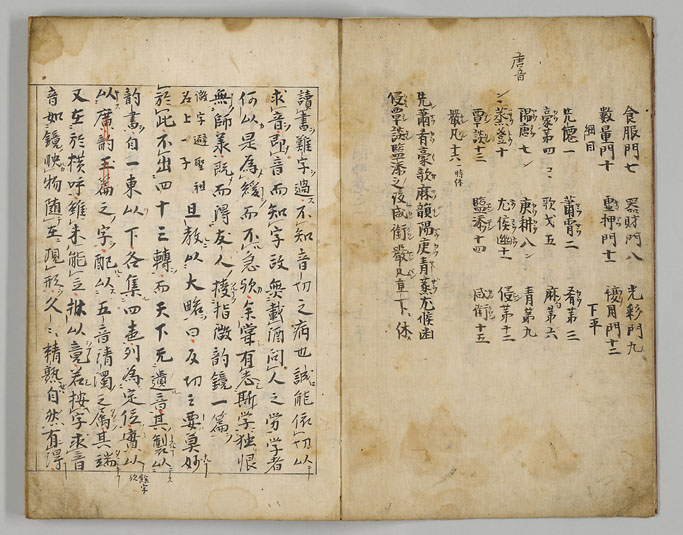 唐音
食服門七 器財門八 光彩門九
數量門十 靈押門十一 門十二
下平
先僊一 蕭霄二 肴第三
豪第四 歌戈五 麻第六
陽唐七 庚耕八 青第九
蒸登十 尤侯幽十一 侵第十二
覃談十三 鹽添十四 咸銜十五
嚴凡十六
先蕭肴豪歌麻韻陽庚青蒸尤候函
侵覃談鹽添之後咸銜嚴凡章下休
讀書難字過不知音切之病也誠能依切以
求音即音而知字故無載酒問人之労学者
何以是為緩而不急欤余嘗有志斯学独恨
無師承既而得友人授指微韵鏡一篇
微字避聖祖
名上一字
且教以大略曰反切之要莫妙
於此不出四十三轉而天下无遺音其製以
韵書自一東以下各集四声列為定位實以
以廣韵玉篇之字配以五音清濁之属其端
又在於横呼雖未能立 以竟若按字求音
音如鏡映物随在現形久ゝ精熟自然有得